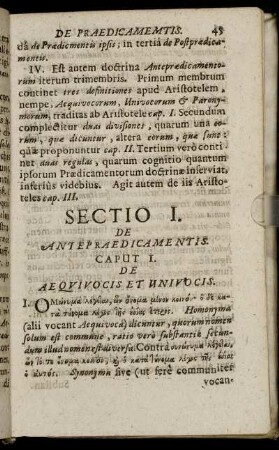 DE PRAEDICAMEMTIS. 45
dâ de Prædicamentis ipsis; in tertiâ de Postprædica-
mentis.
IV. Est autem doctrina Antepræedicamento-
rum iterum trimembris. Primum membrum
continet tres definitiones apud Aristotelem,
nempe, Aequivocorum, Univocorum & Parony-
morum, traditas ab Aristotele cap. I. Secundum
complectitur duas divisiones, quarum una eo-
rum, quæ dicuntur, altera eorum, quæ sunt:
quæ proponuntur cap. II. Tertium verò conti-
net duas regulas, quarum cognitio quantum
ipsorum Prædicamentorum doctrinæ inserviat,
inferiùs videbitur. Agit autem de iis Aristo-
teles cap. III.
SECTIO I.
DE
ANTEPRAEDICAMENTIS.
CAPUT I.
DE
AEQVIVOCIS ET UNIVOCIS.
I. Ὁμώνυμα λέγεται, ὧν ὄνομα μόνον κοινὸν ὁ δὲ κα-
τὰ τοὔνομα λόγος τῆς οὐσίας ἕτερος. Homonyma
(alii vocant Aequivoca) dicuntur, quorum nomen
solum est commune, ratio verò substantiæ secun-
dum illud nomen est diversa. Contrà συνώνυμα λέγεται,
ὧν τό τε ὄνομα κοινὸν, καὶ ὁ κατὰ τοὔνομα λόγος τῆς οὐσίας
ὁ αὐτός. Synonyma sive (ut ferè communiter
vocan-